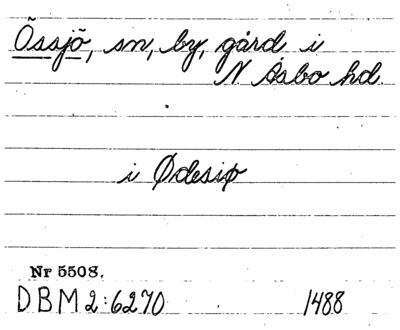 Össjö, sn, by, gård i
N Åsbo hd.
i Ødesiø
Nr 5508.
DBM 2:6270 1488